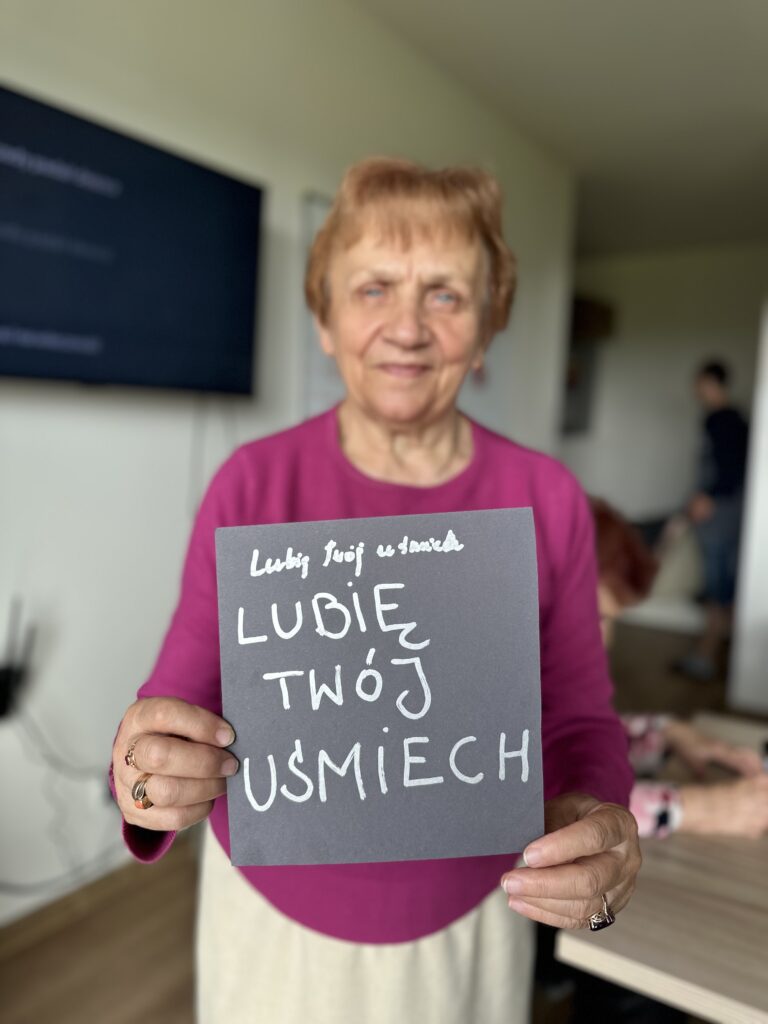 Lubię Twój uśmiech
LUBIĘ
TWÓJ
UŚMIECH